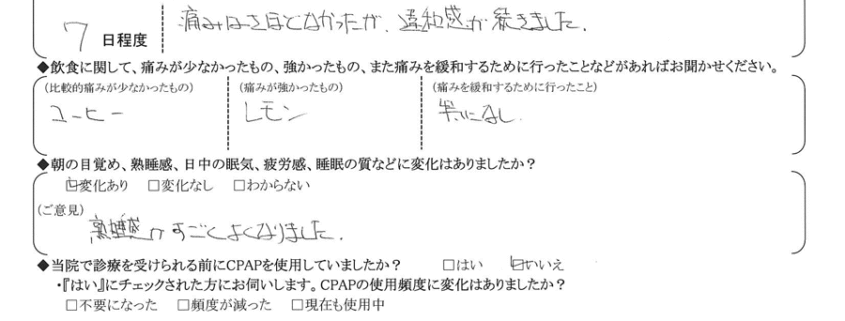 痛みはさほどなかったが、違和感が続きました。
7 日程度
◆飲食に関して、痛みが少なかったもの、強かったもの、また痛みを緩和するために行ったことなどがあればお聞かせください。
(比較的痛みが少なかったもの) (痛みが強かったもの) (痛みを緩和するために行ったこと)
コーヒー レモン 特になし
◆朝の目覚め、熟睡感、日中の眠気、疲労感、睡眠の質などに変化はありましたか？
☑変化あり □変化なし □わからない
(ご意見)
熟睡感がすごくよくなりました。
◆当院で診療を受けられる前にCPAPを使用していましたか？ □はい ☑いいえ
・『はい』にチェックされた方にお伺いします。CPAPの使用頻度に変化はありましたか？
□不要になった □頻度が減った □現在も使用中